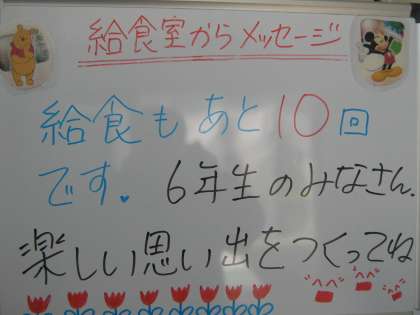 給食室からメッセージ
給食もあと10回
です。6年生のみなさん、
楽しい思い出をつくってね